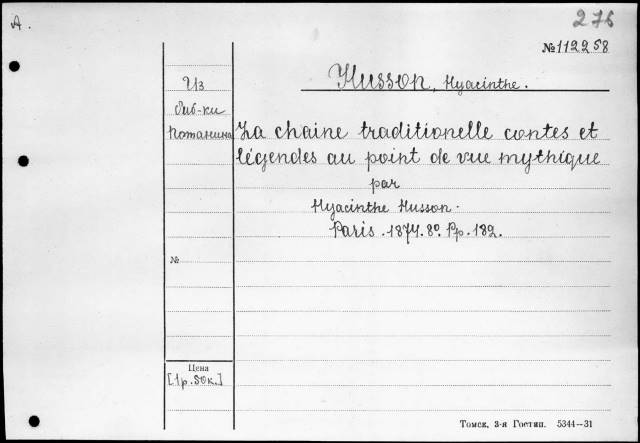 A.
276
№112258
Husson, Hyacinthe.
Из
биб-ки
Потанина
La chaine traditionelle contes et
légendes au point de vue mythique
par
Hyacinthe Husson.
Paris. 1874. 8º. Pp. 182.
№
Цена
[1р. 50к.]
Томск, 3-я Гостип. 5344—31